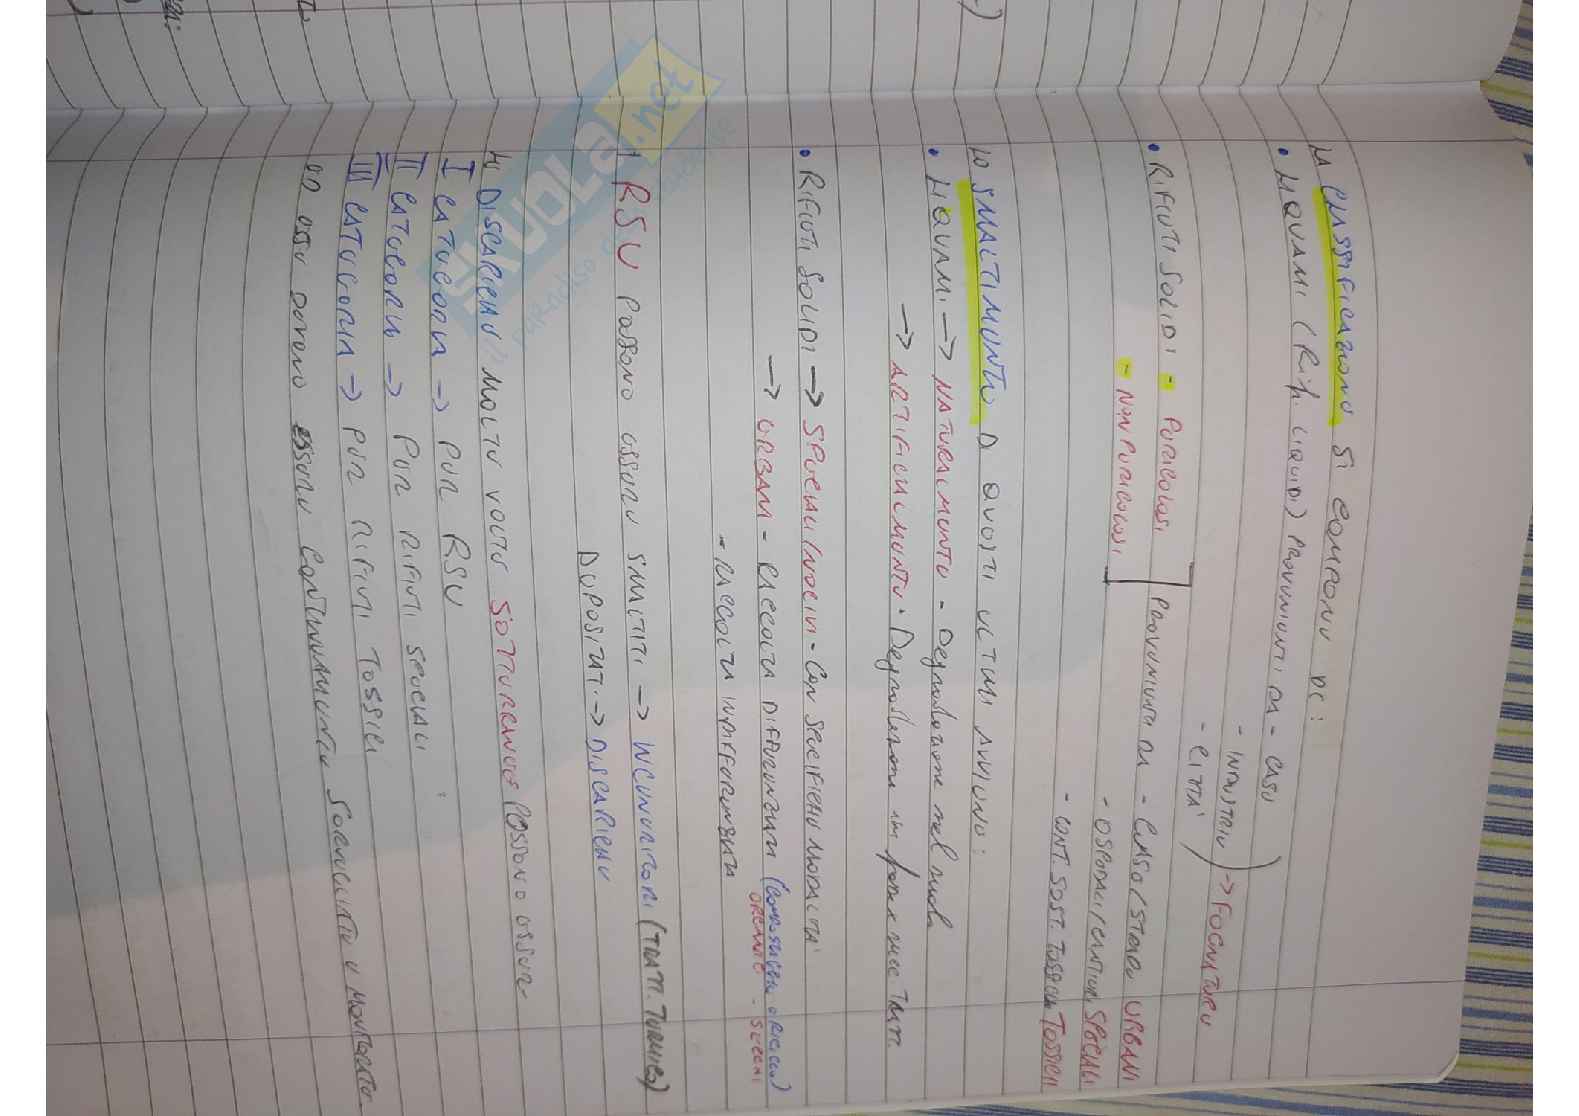 LA CLASSIFICAZIONE SI COMPONE DI:
• LIQUAMI (Rif. LIQUIDI) PROVENIENTI DA - CASE
- INDUSTRIE
- CITTÀ
→ FOGNATURE
• RIFIUTI SOLIDI - PERICOLOSI
- NON PERICOLOSI
PROVENIENTI DA - CASE/STRADE URBANI
- OSPEDALI/CANTIERI SPECIALI
- CONT. SOST. TOSSICHE TOSSICI
LO SMALTIMENTO DI QUESTI ULTIMI AVVIENE:
• LIQUAMI → NATURALMENTE - Degradazione nel suolo
→ ARTIFICIALMENTE - Degradazione in
• RIFIUTI SOLIDI → SPECIALI/NOCIVI - CON SPECIFICHE MODALITÀ
→ URBANI - RACCOLTA DIFFERENZIATA
ORGANIC - SECCHI
- RACCOLTA INDIFFERENZIATA
I RSU POSSONO ESSERE SMALTITI → INCENERITORI (TRATT. TERMICO)
DEPOSITATI → DISCARICHE
LE DISCARICHE MOLTE VOLTE SOTTERRANEE POSSONO ESSERE
I CATEGORIA → PER RSU
II CATEGORIA → PER RIFIUTI SPECIALI
III CATEGORIA → PER RIFIUTI TOSSICI
ED ESSE DEVONO ESSERE CONTINUAMENTE SORVEGLIATE E MONITORATE.
SKUOLA.net
paradiso dello studente